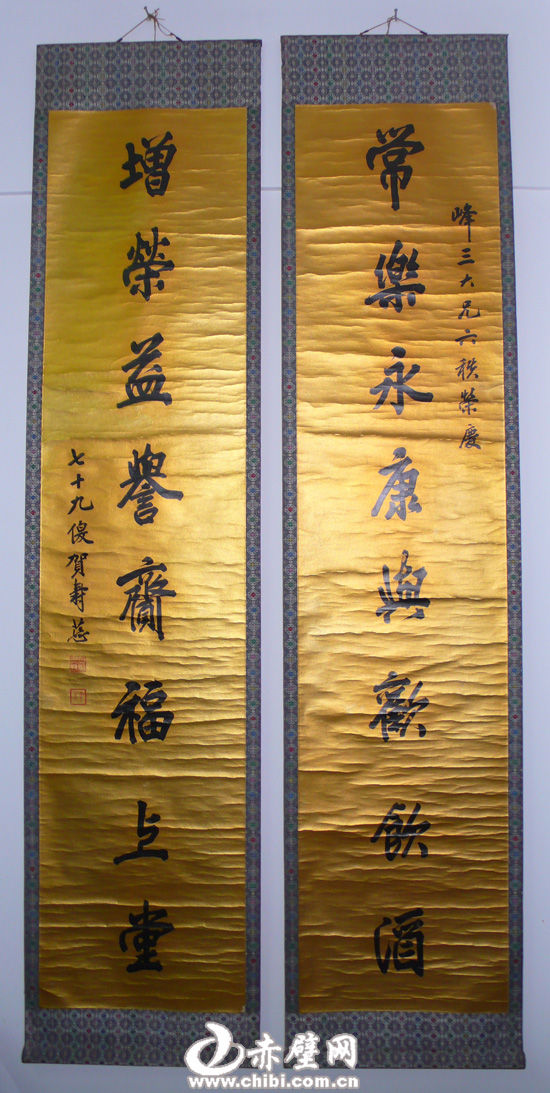 峰三大兄六秩榮慶
常樂永康與歡飲酒
增榮益譽齎福上堂
七十九傁賀壽慈
赤壁网
www.chibi.com.cn